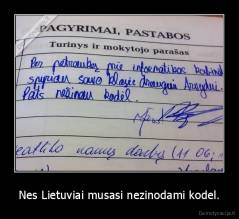 PAGYRIMAI, PASTABOS
Turinys ir mokytojo parašas
Per pertrauką prie informatikos kabineto
spyriau savo klasės draugui
Pats nežinau kodėl.
neatliko namų darbų (11 06
Nes Lietuviai musasi nezinodami kodel.